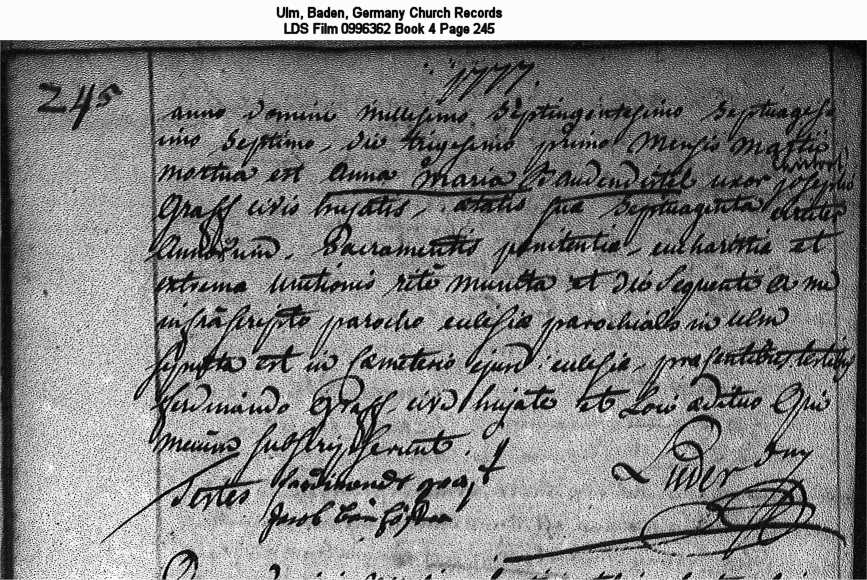 Ulm, Baden, Germany Church Records
LDS Film 0996362 Book 4 Page 245
1777.
245
anno Domini Millesimo Septingentesimo Septuagesi
mo Septimo, die trigesimo primo Mensis Martii
mortua est Anna Maria uxor Josephi
Graff civis hujatis, ætatis suæ Septuaginta circiter
Annorum, Sacramentis pœnitentiæ, eucharistiæ et
extremæ unctionis rite munita et die Sequenti a me
infrascripto parocho ecclesiæ parochialis in ulm
Sepulta est in Cœmeterio ejusd: ecclesiæ, præsentibus testibus
ferdinando Graff cive hujate et Loci ædituo Qui
mecum subscripserunt.
Testes ferdinandt graf
Jacob